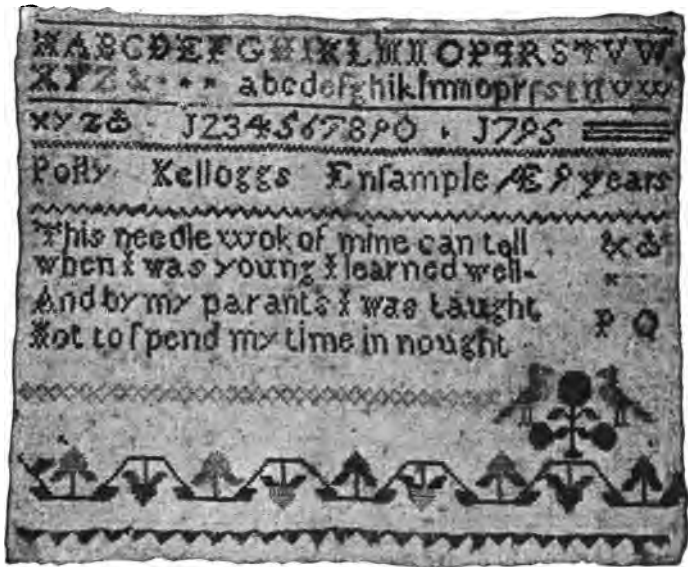 ABCDEFGHIKLMNOPQRSTVW
XYZ& abcdefghiklmnoprſstuvw
xyz& 1234567890 1795
Polly Kelloggs Enſample Æ 9 years
This needle wok of mine can tell &
when I was young I learned well
And by my parants I was taught P Q
Not to ſpend my time in nought